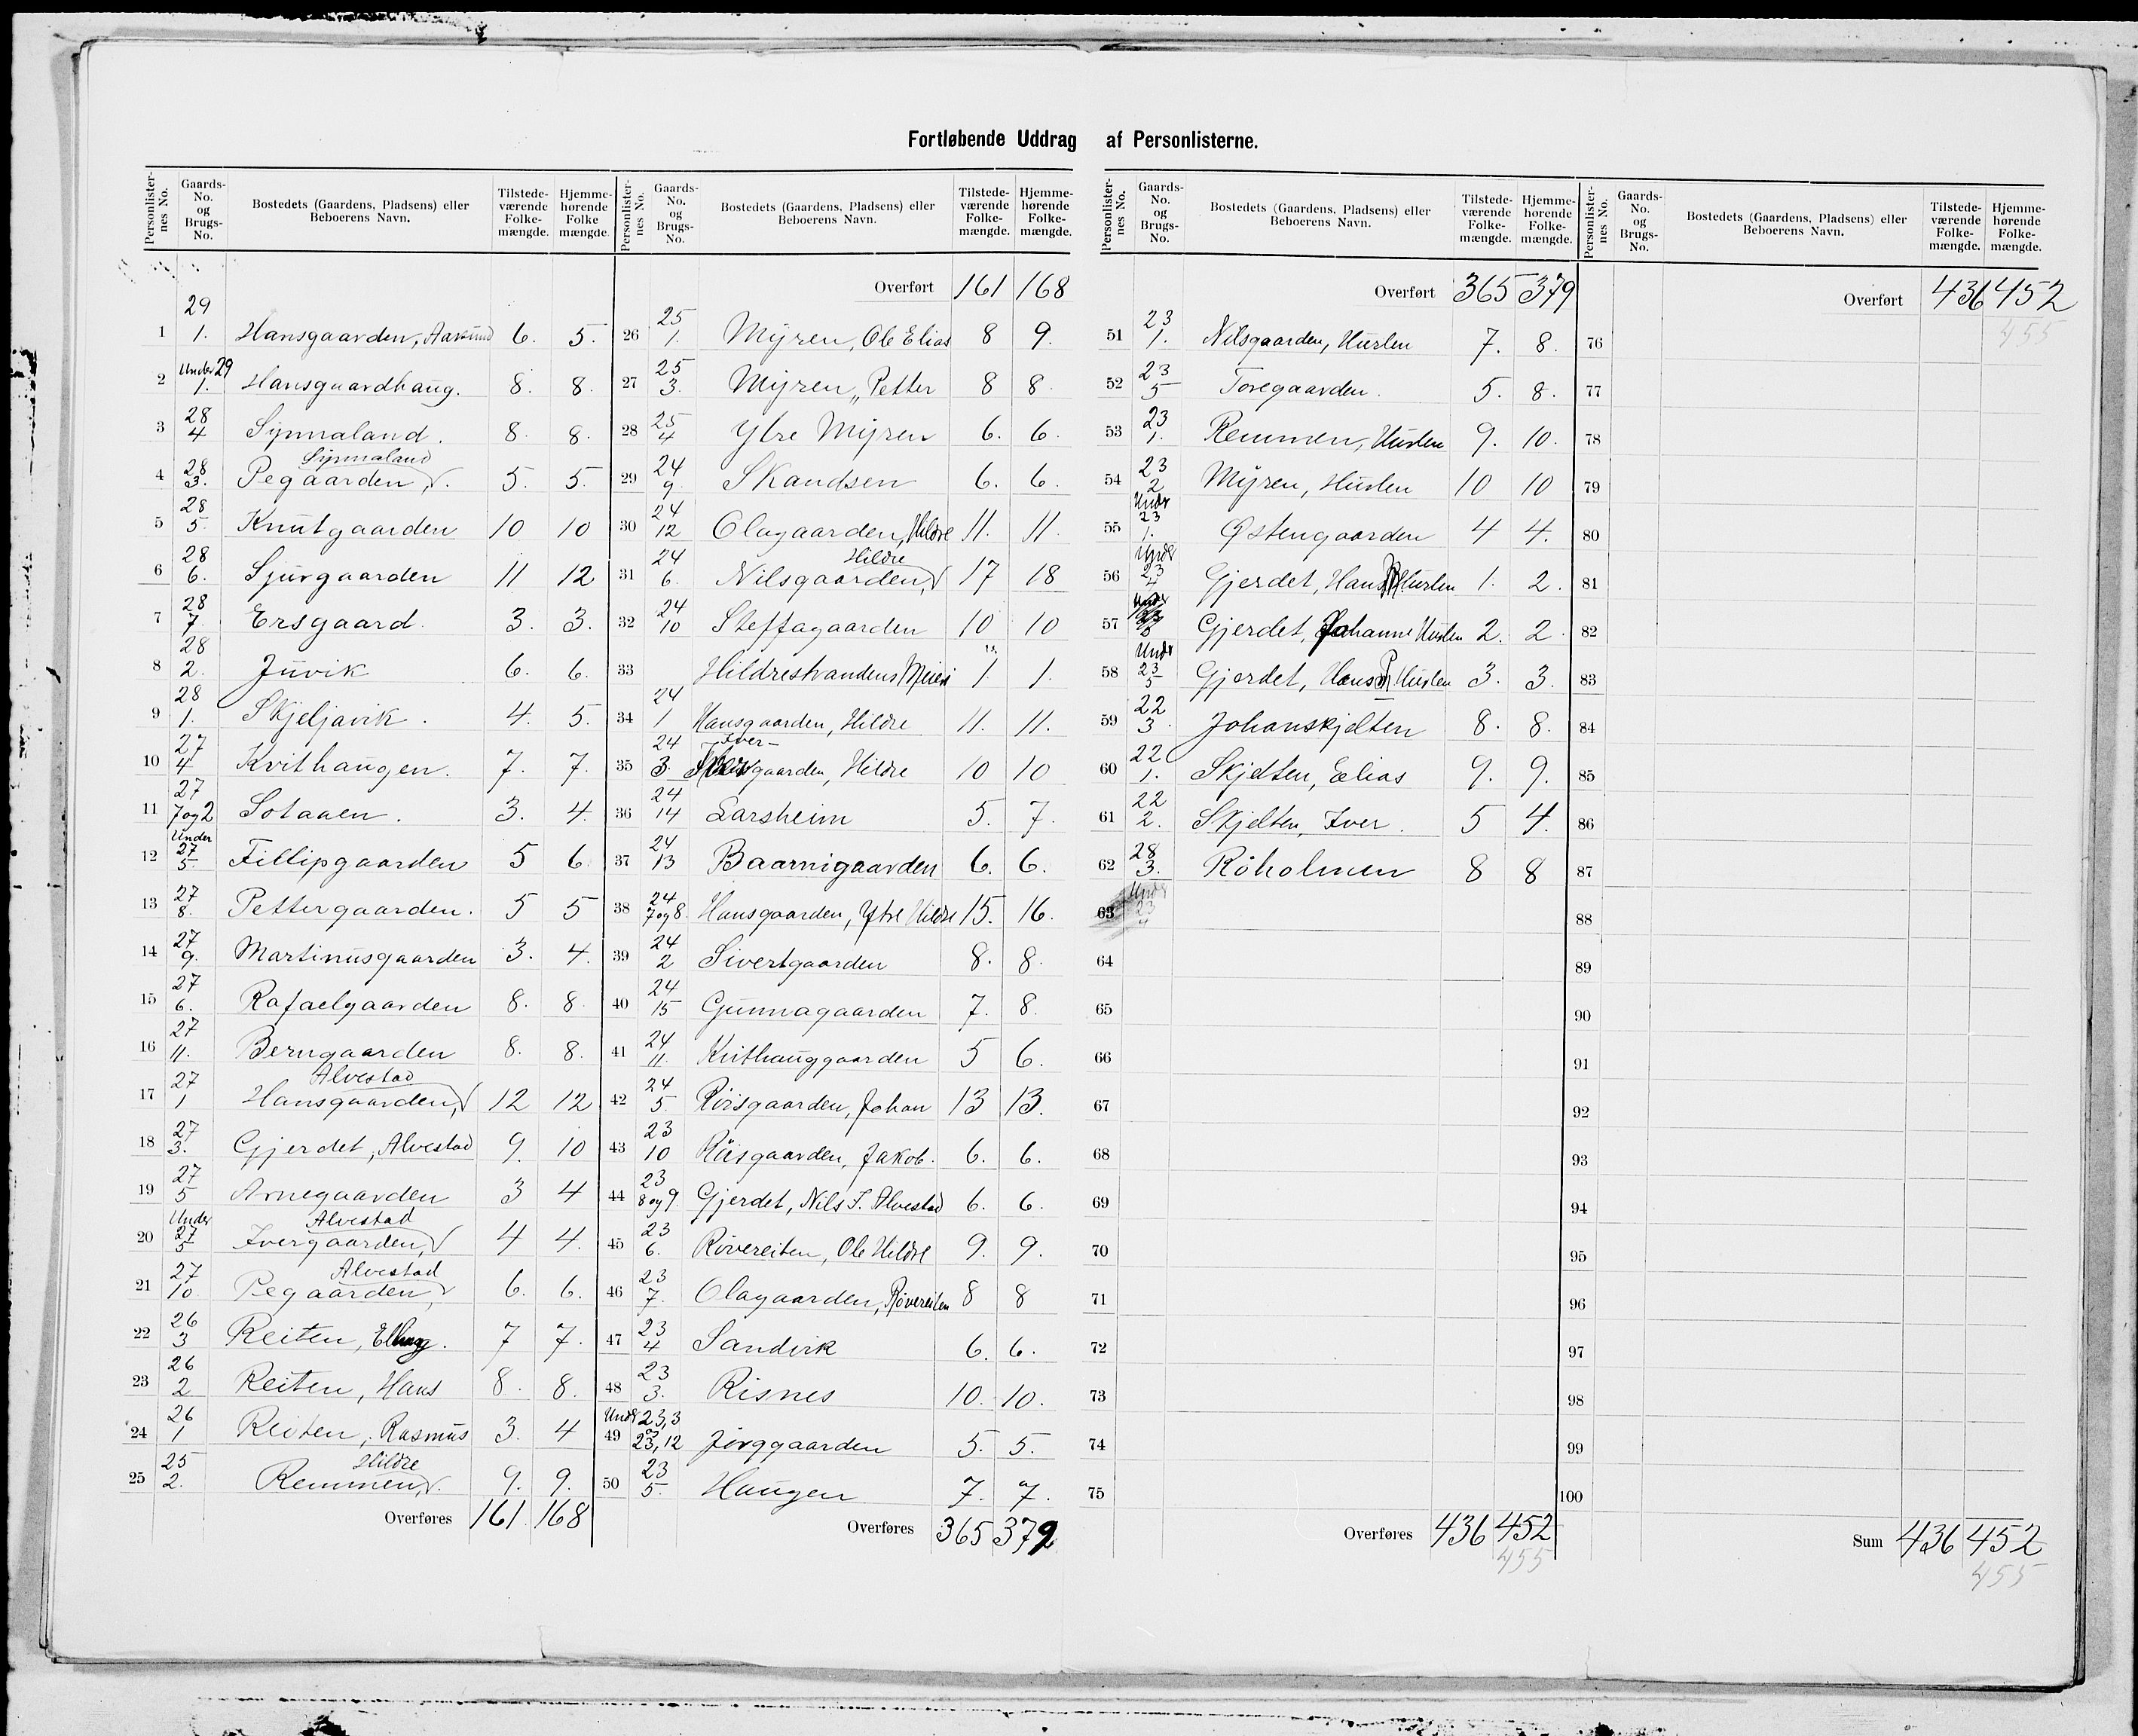 Fortløbende Uddrag af Personlisterne.
Personlister-nes No. Gaards-No. og Brugs-No. Bostedets (Gaardens, Pladsens) eller Beboerens Navn. Tilstede-værende Folke-mængde. Hjemme-hørende Folke mængde.
29
1 1. Hansgaarden, Aakund 6. 5.
Under 29
2 1. Hansgaardhaug. 8. 8.
28
3 4 Synnaland. 8. 8.
28 Synnaland
4 3. Pegaarden, √. 5. 5.
28
5 5. Knutgaarden 10 10
28
6 6. Sjurgaarden 11 12
28
7 7. Ersgaard. 3. 3.
28
8 2. Juvik 6. 6.
28
9 1. Skjeljavik. 4. 5.
27
10 4 Kvithaugen. 7. 7.
27
11 7og2 Sotaaen. 3. 4.
Under 27
12 5 Fillipgaarden 5 6
27
13 8. Pettergaarden. 5 5
27
14 9. Martinusgaarden 3. 4.
27
15 6. Rafaelgaarden 8. 8
27
16 11. Berngaarden 8. 8.
27 Alvestad
17 1 Hansgaarden, √ 12 12
27
18 3. Gjerdet, Alvestad 9. 10
27
19 5 Arnegaarden 3 4
Under 27 Alvestad
20 5 Ivergaarden, √ 4 4.
27 Alvestad
21 10 Pegaarden, √ 6. 6.
26
22 3 Reiten, Elling. 7 7.
26
23 2 Reiten, Hans 8. 8.
26
24 1 Reiten, Rasmus 3. 4
25 Hildre
25 2. Remmen, √. 9. 9.
Overføres 161 168
Personlister-nes No. Gaards-No. og Brugs-No. Bostedets (Gaardens, Pladsens) eller Beboerens Navn. Tilstede-værende Folke-mængde. Hjemme-hørende Folke-mængde.
Overført 161 168
25
26 1. Myren, Ole Elias 8 9.
25
27 3. Myren, Petter 8 8.
25
28 4 Ytre Myren 6. 6.
24
29 9. Skandsen 6. 6.
24
30 12 Olagaarden, Hildre 11. 11.
24 Hildre
31 6. Nilsgaarden, √ 17 18
24
32 10 Steffagaarden 10 10
33 Hildrestrandens Meieri 1. 1.
24
34 1 Hansgaarden, Hildre 11. 11.
24 Iver-
35 3. gaarden, Hildre 10 10
24
36 14 Larsheim 5. 7.
24
37 13 Baarnigaarden 6. 6.
24
38 7og8. Hansgaarden, Ytre Hildre 15. 16.
24
39 2 Sivertgaarden 8. 8.
24
40 15 Gunnagaarden 7. 8.
24
41 11. Kvithauggaarden 5 6.
24
42 5. Röisgaarden, Johan 13 13.
23
43 10 Röisgaarden, Jakob. 6. 6.
23
44 8og9. Gjerdet, Nils J. Alvestad 6. 6.
23
45 6. Rövereiten, Ole Hildre 9. 9.
23
46 7. Olagaarden, Rövereiten 8 8
23
47 4 Sandvik 6. 6.
23
48 3. Risnes 10. 10.
Under 23,3
49 og 23,12 Jörggaarden 5. 5.
23
50 5. Haugen 7. 7.
Overføres 365 379
Personlister-nes No. Gaards-No. og Brugs-No. Bostedets (Gaardens, Pladsens) eller Beboerens Navn. Tilstede-værende Folke-mængde. Hjemme-hørende Folke-mængde.
Overført 365 379
23
51 1. Nilsgaarden, Huslen 7. 8.
23
52 5 Toregaarden. 5. 8.
23
53 1. Remmen, Huslen 9. 10.
23
54 2 Myren, Huslen 10 10
Under 23
55 1. Östengaarden 4 4.
Under 23
56 4 Gjerdet, Hans Huslen 1. 2.
Under
57 Gjerdet, Johanne Huslen 2. 2.
Under 23
58 5 Gjerdet, Hans P. Huslen 3. 3.
22
59 3. Johanskjelten 8. 8.
22
60 1. Skjelten, Elias 9. 9.
22
61 2. Skjelten, Iver. 5 4.
28
62 3. Röholmen 8 8
Under 23
63 4
64
65
66
67
68
69
70
71
72
73
74
75
Overføres 436 452
455
Personlister-nes No. Gaards-No. og Brugs-No. Bostedets (Gaardens, Pladsens) eller Beboerens Navn. Tilstede-værende Folke-mængde. Hjemme-hørende Folke-mængde.
Overført 436 452
455
76
77
78
79
80
81
82
83
84
85
86
87
88
89
90
91
92
93
94
95
96
97
98
99
100
Sum 436 452
455